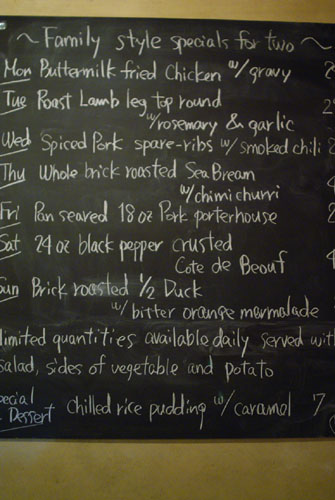 ~ Family style specials for two ~
Mon Buttermilk fried Chicken w/ gravy
Tue Roast Lamb leg top round
w/rosemary & garlic
Wed Spiced Pork spare-ribs w/ smoked chili
Thu Whole brick roasted Sea Bream
w/chimichurri
Fri Pan seared 18 oz Pork porterhouse
Sat 24 oz black pepper crusted
Cote de Beouf
Sun Brick roasted 1/2 Duck
w/ bitter orange mermalade
limited quantities available daily served with
salad, sides of vegetable and potato
Special
Dessert chilled rice pudding w/ caramol 7